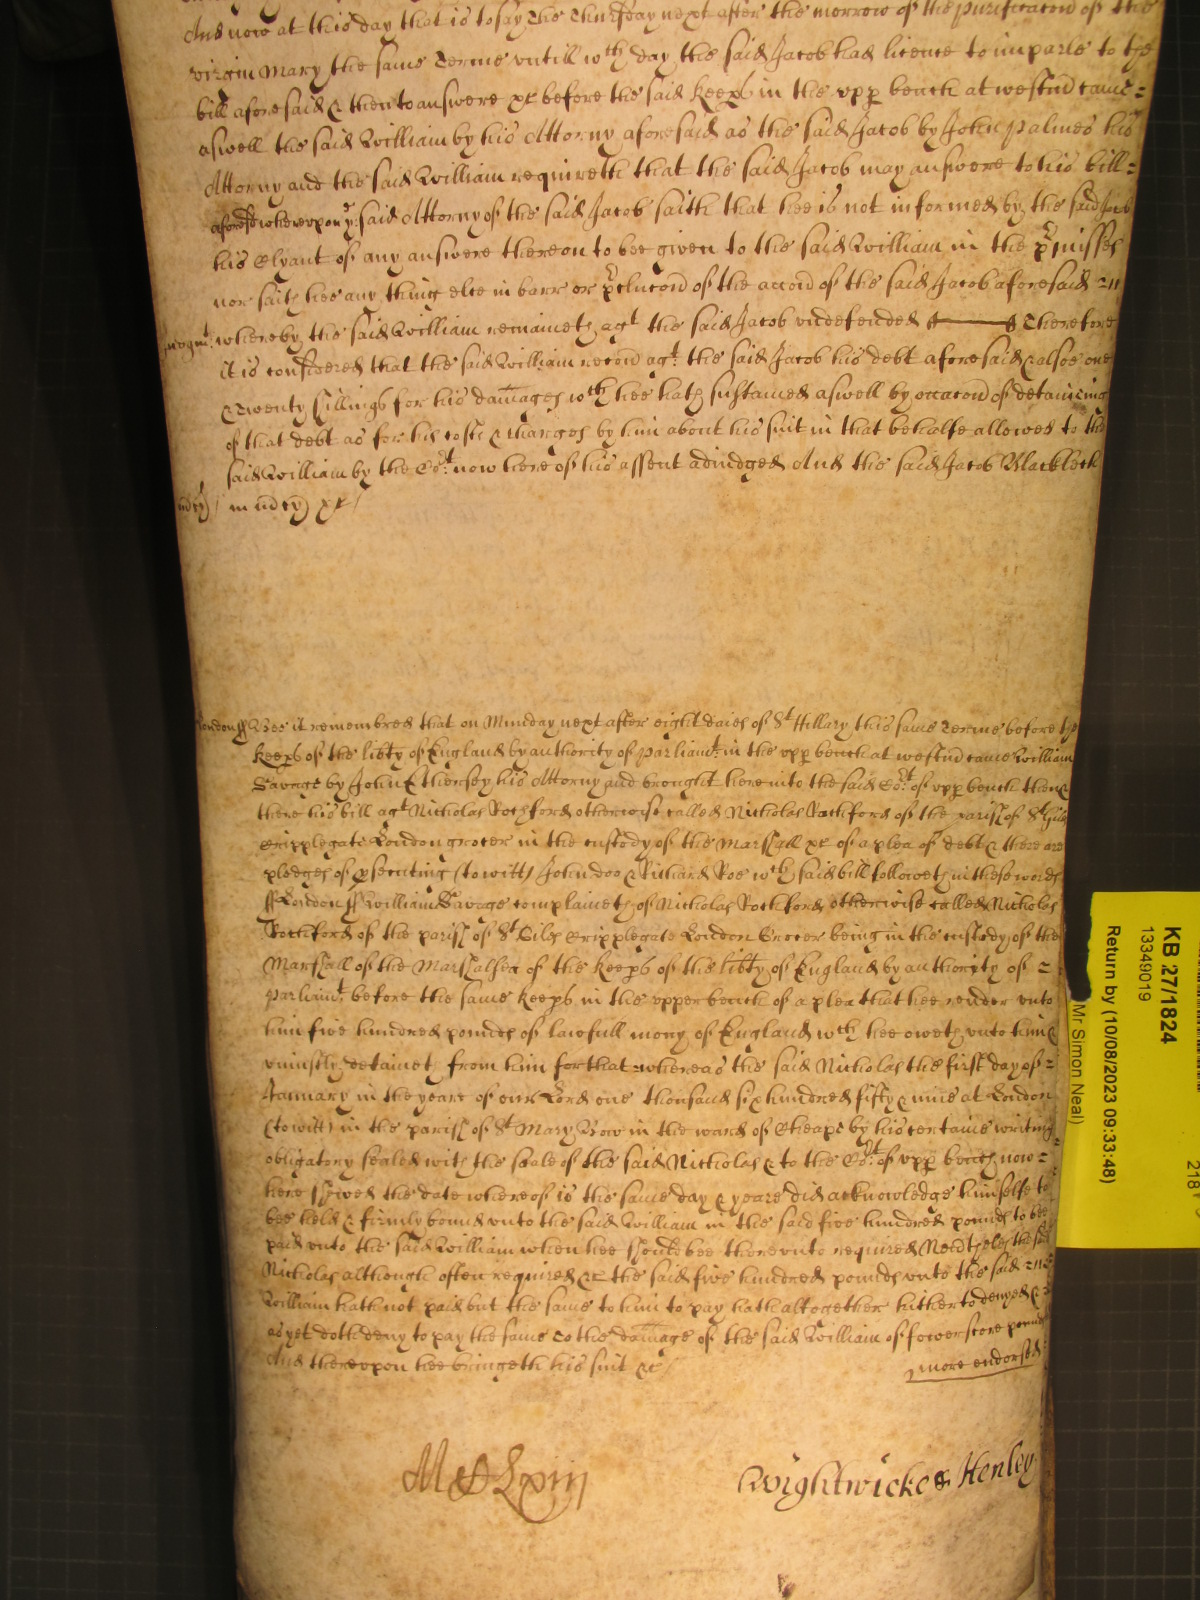 And now at this day that is to say the Thursday next after the morrow of the purificacon of the
virgin Mary the same Terme untill wch day the said Jacob had licence to imparle to the
bill aforesaid & then to answere &c before the said Keeps in the upp bench at westm came =
aswell the said William by his Attorny aforesaid as the said Jacob by John Palmes his
Attorny and the said William requireth that the said Jacob may answere to his bill =
aforesd whereupon ye said Attorny of the said Jacob saith that hee is not informed by the said Jacob
his Clyant of any answere thereon to bee given to the said William in the pmisses
nor saith hee any thing else in barr or pclucon of the accon of the said Jacob aforesaid
whereby the said William remaineth agt the said Jacob undefended Therefore
it is considered that the said William recov agt the said Jacob his debt aforesaid & alsoe one
& twenty shillings for his damages wch hee hath sustained aswell by occacon of detaineing
of that debt as for his costs & charges by him about his suit in that behalfe allowed to the
said William by the Cot now here of his assent adiudged And the said Jacob Blacklock
in mcy &c
London ss Bee it remembred that on Munday next after eight daies of St Hillary this same Terme before the
Keeps of the libty of England by authority of Parliamt in the upp bench at westm came William
Savage by John Thersby his Attorny and brought here into the said Cot of upp bench then &
there his bill agt Nicholas Rochford otherwise called Nicholas Rochford of the parish of St Giles
Cripplegate London grocer in the custody of the Marshall &c of a plea of debt & there are
pledges of psecuting (to witt) John doo & Richard Roe wch said bill followeth in these words
ss London ss William Savage complaineth of Nicholas Rochford otherwise called Nicholas
Rochford of the parish of St Giles Cripplegate London Grocer being in the custody of the
Marshall of the Marshalsea of the Keeps of the libty of England by authority of =
Parliamt before the same Keeps in the upper bench of a plea that hee render unto
him five hundred pounds of lawfull mony of England wch hee oweth unto him &
uniustly detaineth from him for that whereas the said Nicholas the first day of =
January in the yeare of our Lord one thousand six hundred fifty & nine at London
(to witt) in the parish of St Mary Bow in the ward of Cheape by his certaine writing
obligatory sealed with the seale of the said Nicholas & to the Cot of upp bench now =
here shewed the date whereof is the same day & yeare did acknowledge himselfe to
bee held & firmly bound unto the said William in the said five hundred pounds to bee
paid unto the said William when hee should bee thereunto required Nevertheles the said
Nicholas although often required &c the said five hundred pounds unto the said
William hath not paid but the same to him to pay hath altogether hitherto denyed &
as yet doth deny to pay the same to the damage of the said William of fower score pounds
And thereupon hee bringeth his suit &c
more endorsed
Wightwicke & Henley
KB 27/1824
13349019
Return by (10/08/2023 09:33:48)
Mr Simon Neal)